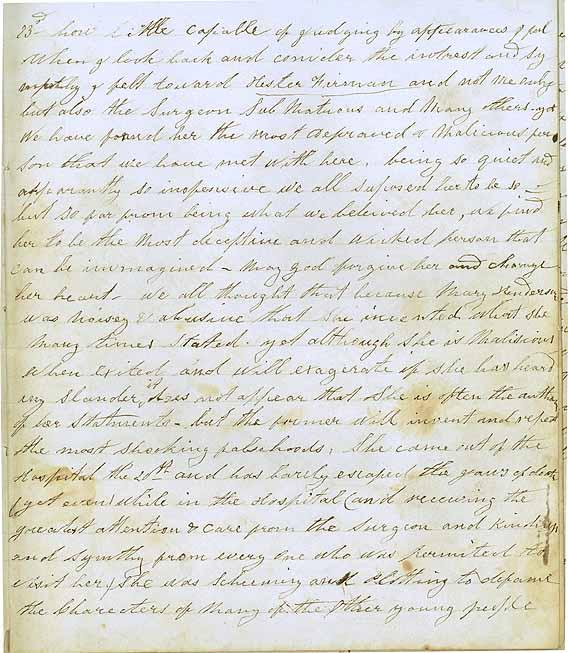 23rd how little capable of gudging by appearances I feel
When I look back and concider the intrest and Sy
mpathy I felt toward Hester Firman and not me only
but also the Surgeon Sub Matrons and Many others. yet
We have found her the most depraved & Malicious per
son that we have met with here. being so quiet and
apparantly so inofensive we all suposed her to be so
but so far from being what we beleived her, we find
her to be the Most deceptive and wicked person that
can be immagined - May god forgive her and change
her heart - we all thought that because Mary Anderson
was noisey & abusive that she invented what she
Many times stated. yet although she is Malisious
When exited and will exagerate if she has heard
any Slander, it does not appear that She is often the author
of her statments - but the former will invent and repeat
the most shocking falsehoods, She came out of the
Hospital the 20th and has barily escaped the jaws of death
(yet even) while in the Hospital (and receiving the
greatest attention & Care from the Surgeon and kindness
and Sympthy from every one who was permited to
visit her) She was Scheeming and Plotting to defame
the Charecters of Many of the Other young people